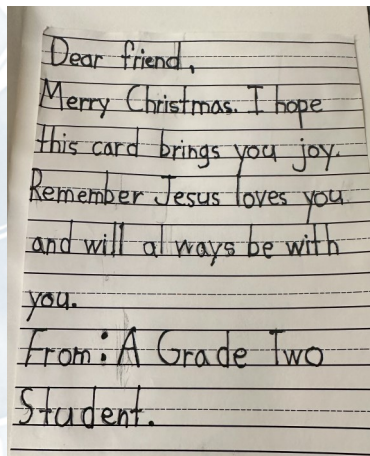 Dear friend,
Merry Christmas. I hope
this card brings you joy.
Remember Jesus loves you
and will always be with
you.
From: A Grade Two
Student.